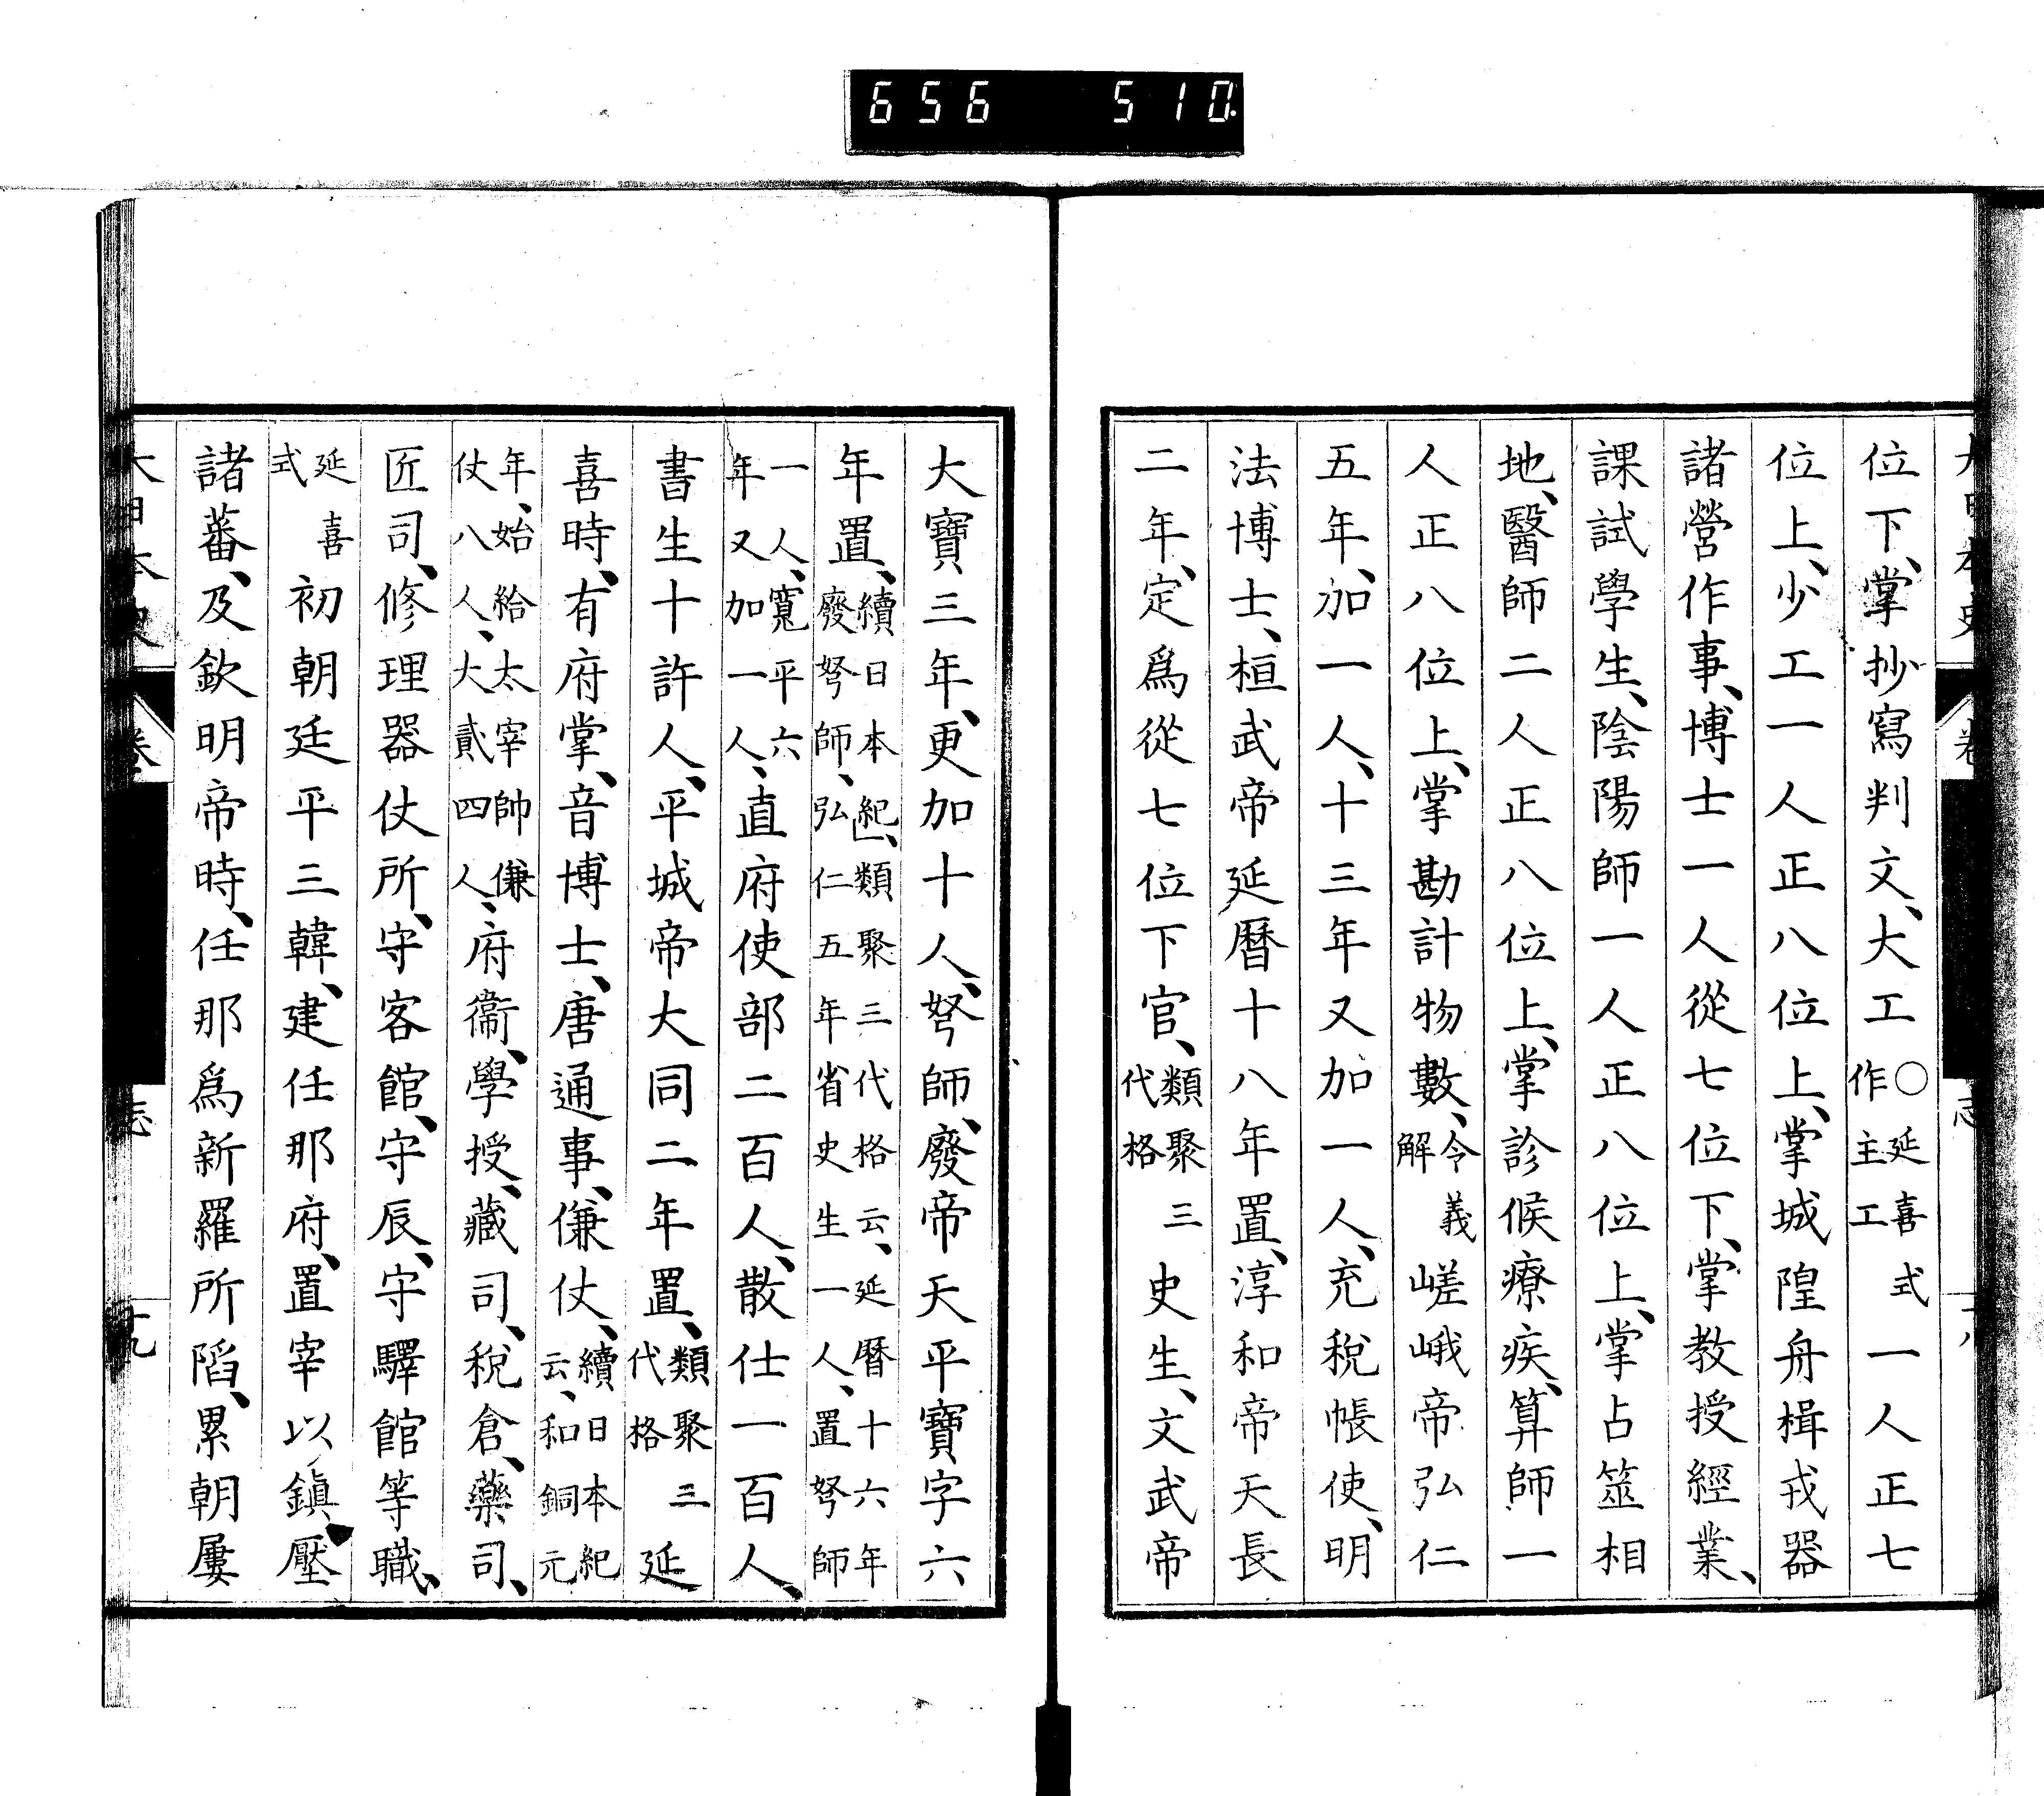 656 510
位下、掌抄寫判文、大工○延喜式作主工一人正七
位上、少工一人正八位上、掌城隍舟楫戎器
諸營作事、博士一人從七位下、掌教授經業、
課試學生、陰陽師一人正八位上、掌占筮相
地、醫師二人正八位上、掌診候療疾、算師一
人正八位上、掌勘計物數、令義解嵯峨帝弘仁
五年、加一人、十三年又加一人、充稅帳使、明
法博士、桓武帝延曆十八年置、淳和帝天長
二年、定爲從七位下官、類聚三代格史生、文武帝
大寶三年、更加十人、弩師、廢帝天平寶字六
年置、續日本紀、類聚三代格云、延曆十六年廢弩師、弘仁五年省史生一人、置弩師
一人、寬平六年又加一人、直府使部二百人、散仕一百人、
書生十許人、平城帝大同二年置、類聚三代格延
喜時、有府掌、音博士、唐通事、傔仗、續日本紀云、和銅元
年、始給太宰帥傔仗八人、大貳四人、府衞、學授、藏司、稅倉、藥司、
匠司、修理器仗所、守客館、守辰、守驛館等職、
延喜式初朝廷平三韓、建任那府、置宰以鎭壓
諸蕃、及欽明帝時、任那爲新羅所陷、累朝屢
大日本史 卷 志 十九